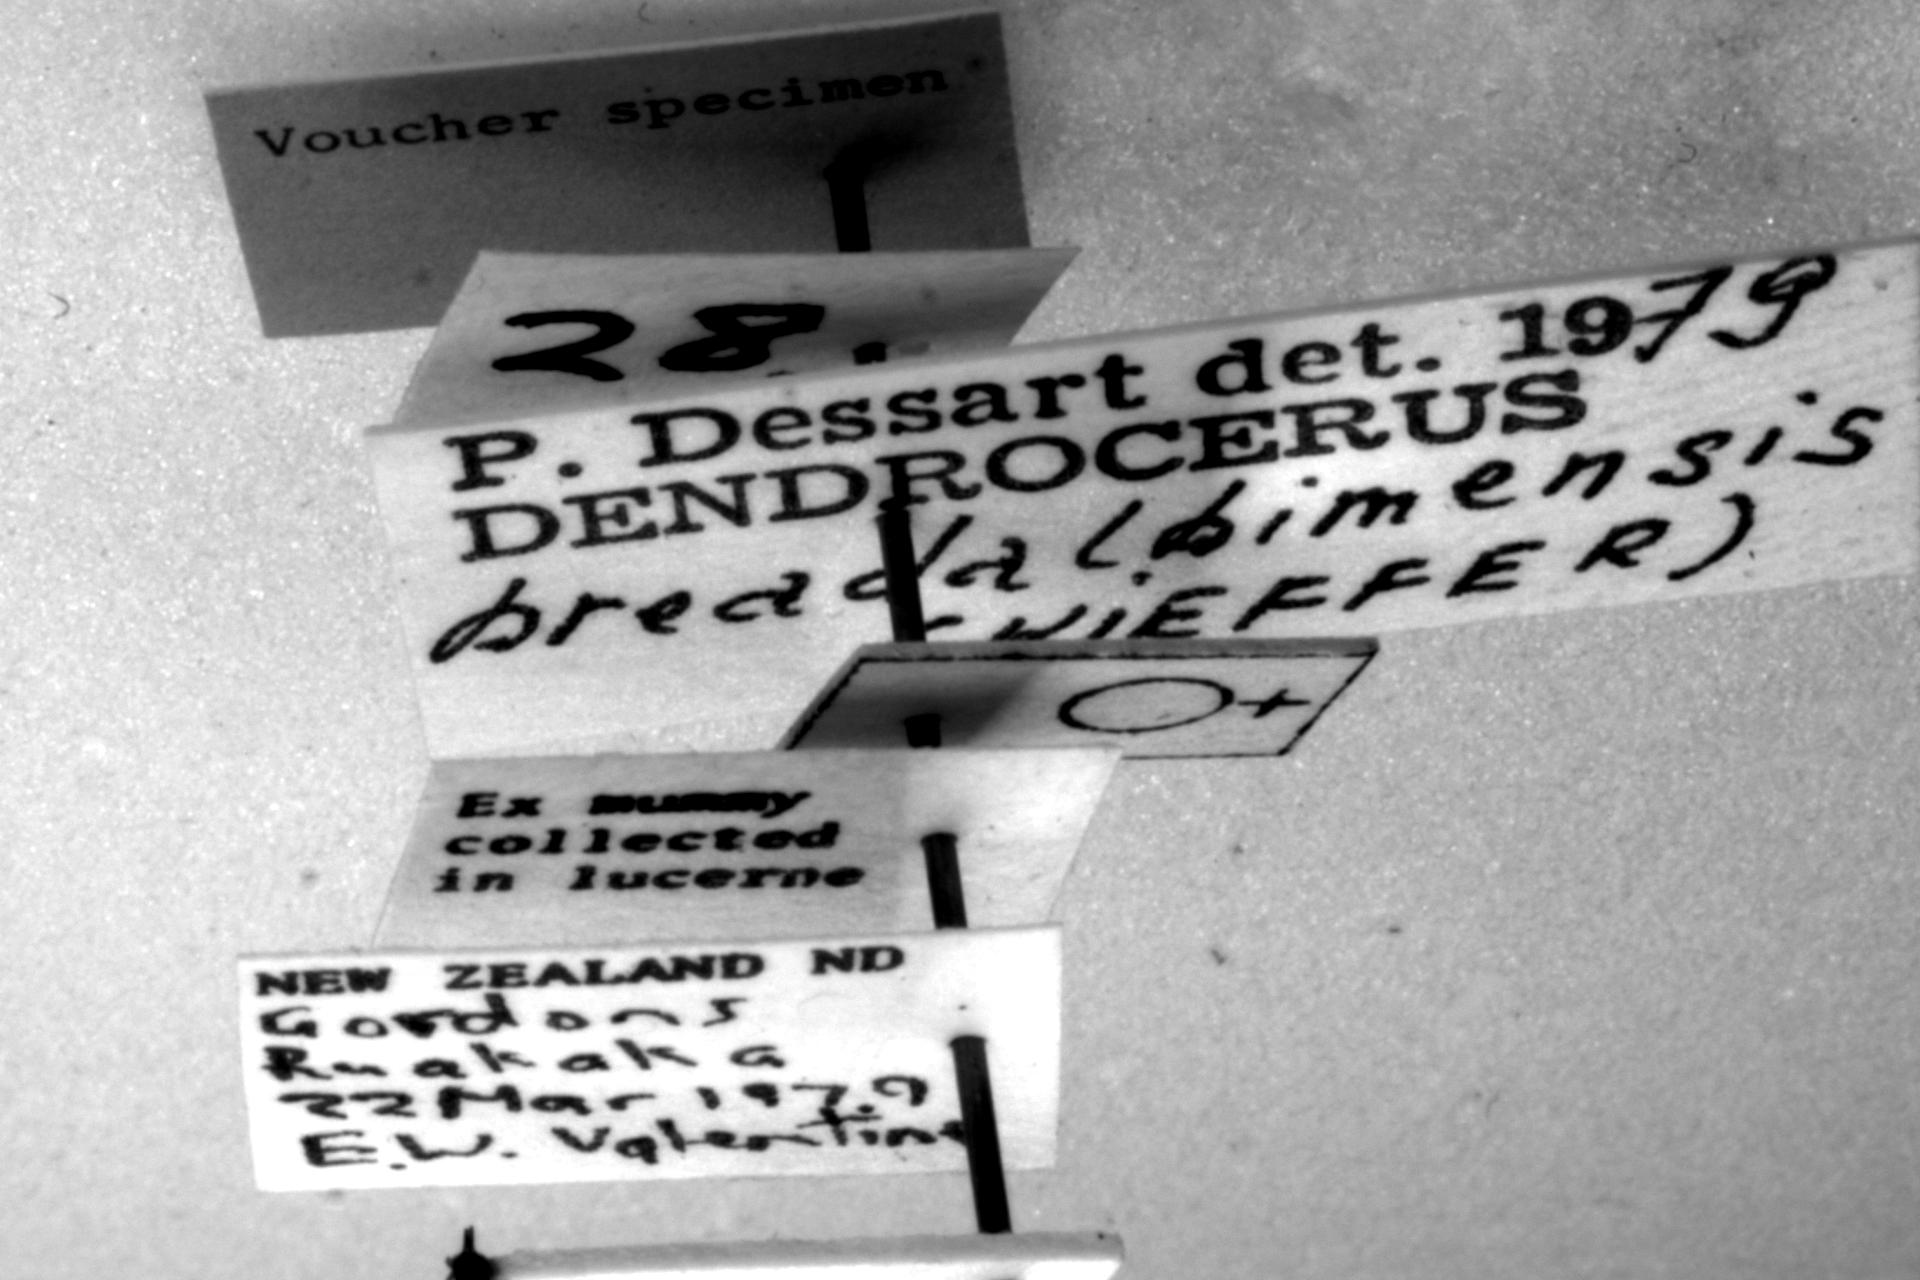 Voucher specimen
28.
P. Dessart det. 1979
DENDROCERUS
breadalbimensis
KIEFFER)
♀
Ex mummy
collected
in lucerne
NEW ZEALAND ND
Gordons
Ruakaka
22 Mar 1979
E.W. Valentine